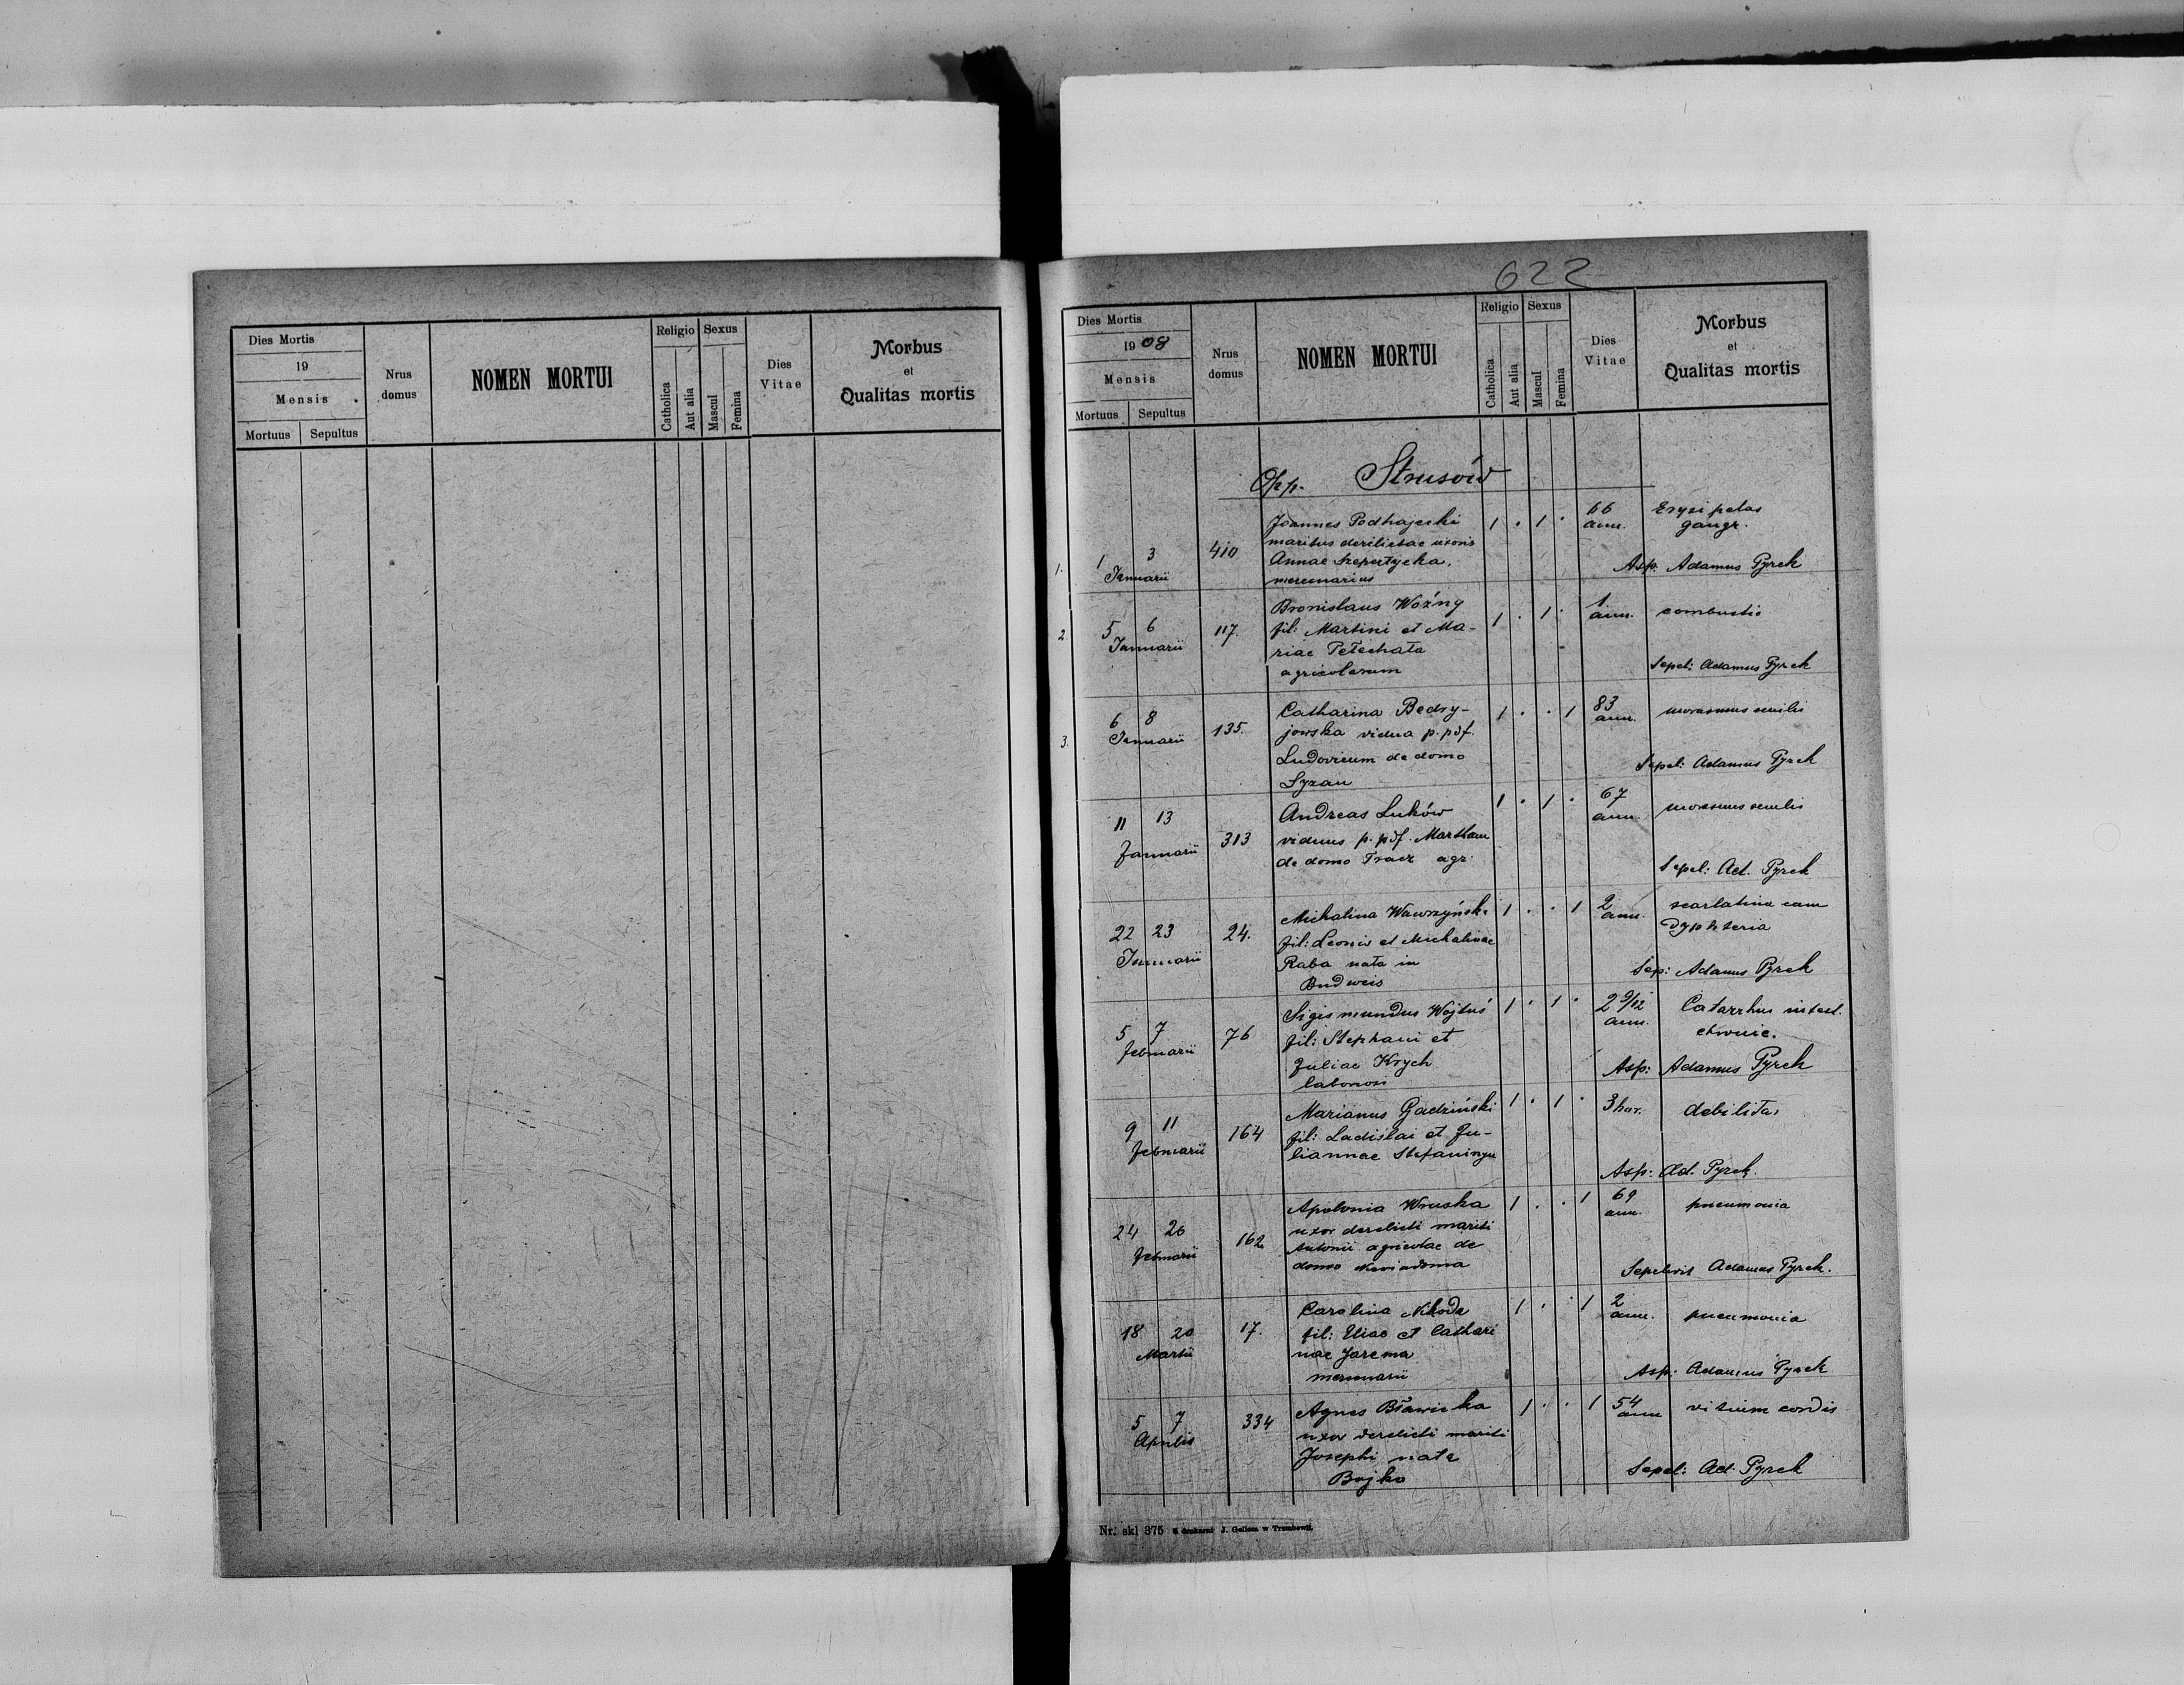 Dies Mortis
19
Mensis
Mortuus Sepultus
Nrus domus
NOMEN MORTUI
Religio
Catholica
Aut alia
Sexus
Mascul
Femina
Dies Vitae
Morbus
et
Qualitas mortis
622
Dies Mortis
19 08
Mensis
Mortuus Sepultus
Nrus domus
NOMEN MORTUI
Religio
Catholica
Aut alia
Sexus
Mascul
Femina
Dies Vitae
Morbus
et
Qualitas mortis
Opp. Strusów
1. 1 3
Januarii
410
Joannes Podhajecki
maritus derelictae uxoris
Annae
mercenarius
1 . 1 .
66
ann.
Erysipelas
gangr.
Asp. Adamus Pyrek
2. 5 6
Januarii
117.
Bronislaus Woźny
fil: Martini et Ma-
riae Petechata
agricolarum
1 . 1 .
1
ann.
combustio
Sepel: Adamus Pyrek
3. 6 8
Januarii
135.
Catharina Bedry-
jowska vidua p. pdf.
Ludovicum de domo
Syzan
1 . . 1
83
ann.
marasmus senilis
Sepel: Adamus Pyrek
11 13
Januarii
313
Andreas Luków
viduus p. pdf. Martham
de domo Tracz agr.
1 . 1 .
67
ann.
marasmus senilis
Sepel: Ad. Pyrek
22 23
Januarii
24.
Michalina Wawrzyńsk.
fil: Leonis et Michalinae
Raba nata in
Budweis
1 . . 1
2
ann.
scarlatina cum
dyphteria
Sep: Adamus Pyrek
5 7
Februarii
76
Sigismundus Wojtuś
fil: Stephani et
Juliae Krych
1 . 1 .
2 9/12
ann.
Catarrhus intest.
chronic.
Asp: Adamus Pyrek
9 11
Februarii
164
Marianus Gadziński
fil: Ladislai et Ju-
liannae Stefaniszyn
1 . 1 .
3 hor.
debilitas
Asp: Ad. Pyrek.
24 26
Februarii
162
Apolonia Wruska
uxor derelicti mariti
Antonii agricolae de
domo Newiadoma
1 . . 1
69
ann.
pneumonia
Sepelivit Adamus Pyrek.
18 20
Martii
17.
Carolina
fil: Eliae et Cathari
nae Jarema
mercenarii
1 . . 1
2
ann.
pneumonia
Asp: Adamus Pyrek
5 7
Aprilis
334
Agnes Bławicka
uxor derelicti mariti
Josephi nata
Bojko
1 . . 1
54
ann
vitium cordis
Sepel: Ad. Pyrek
Nr. skl 375 Z drukarni J. Gellesa w Trembowli.